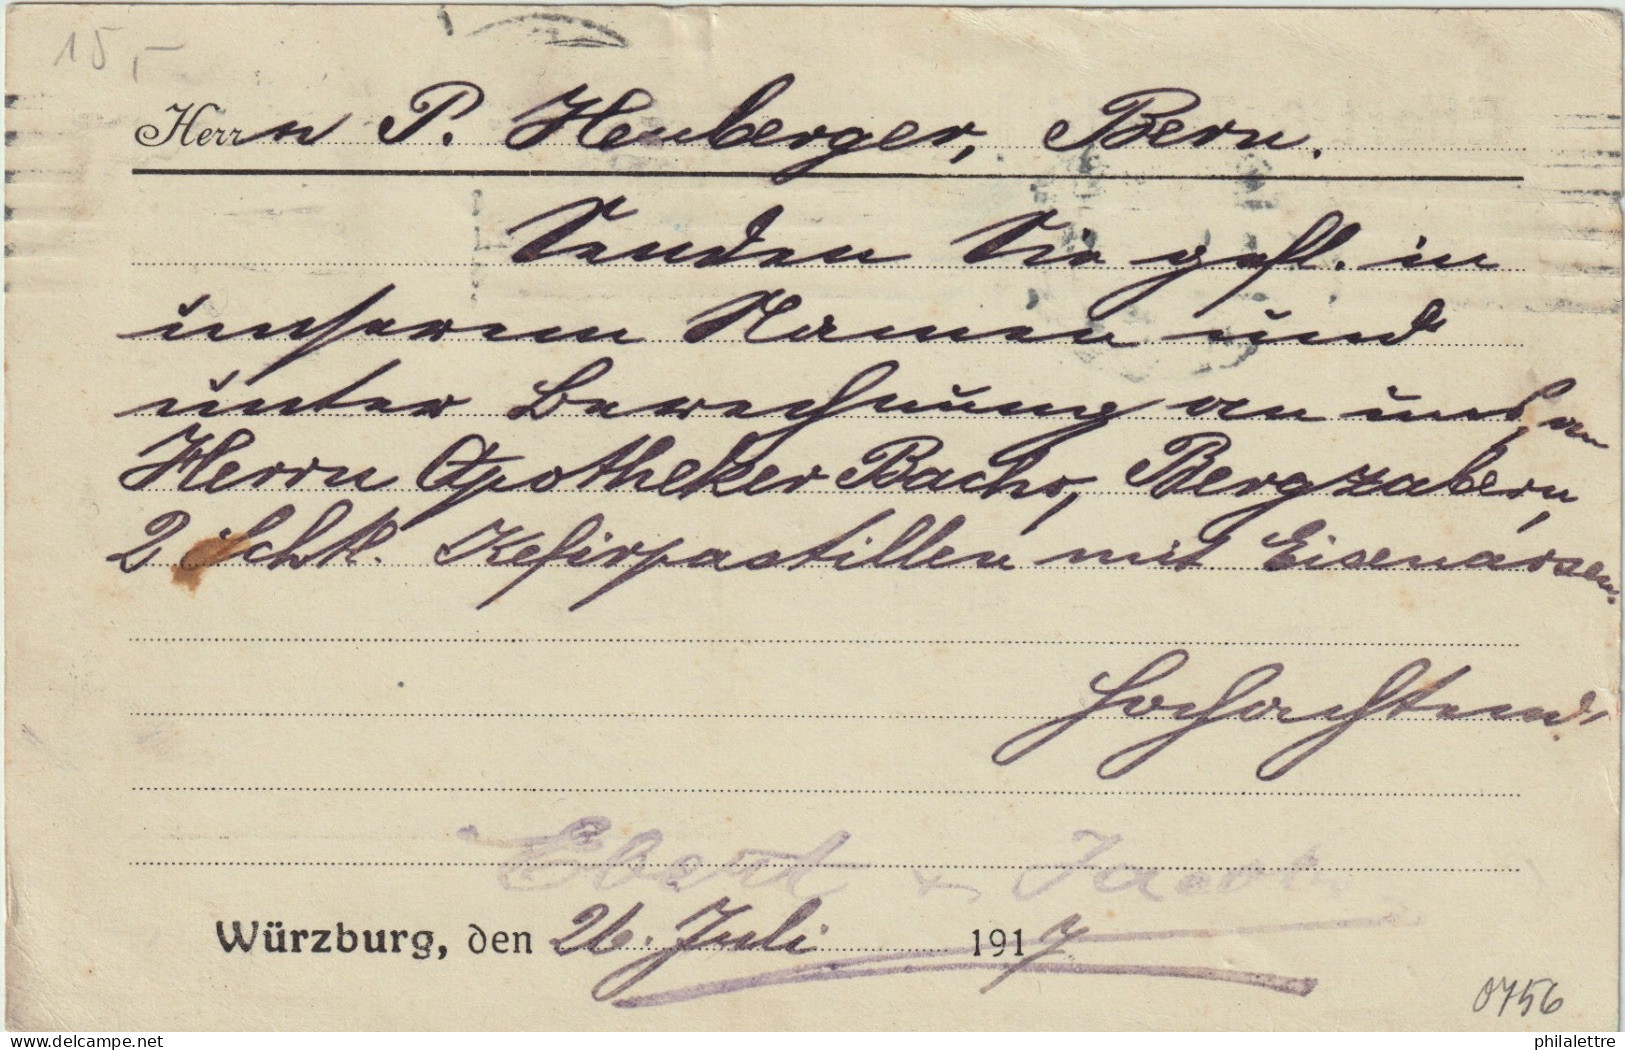 15,–
Herrn P. Heuberger, Bern.
Senden Sie gefl. in
unserem Namen und
unter Berechnung an uns, an
Herrn Apotheker Bachs, Bergzabern,
2 Schtl. Kefirpastillen mit Eisenarsen.
Hochachtend
Ebert & Jacobi
Würzburg, den 26. Juli 1917
0756
philalettre